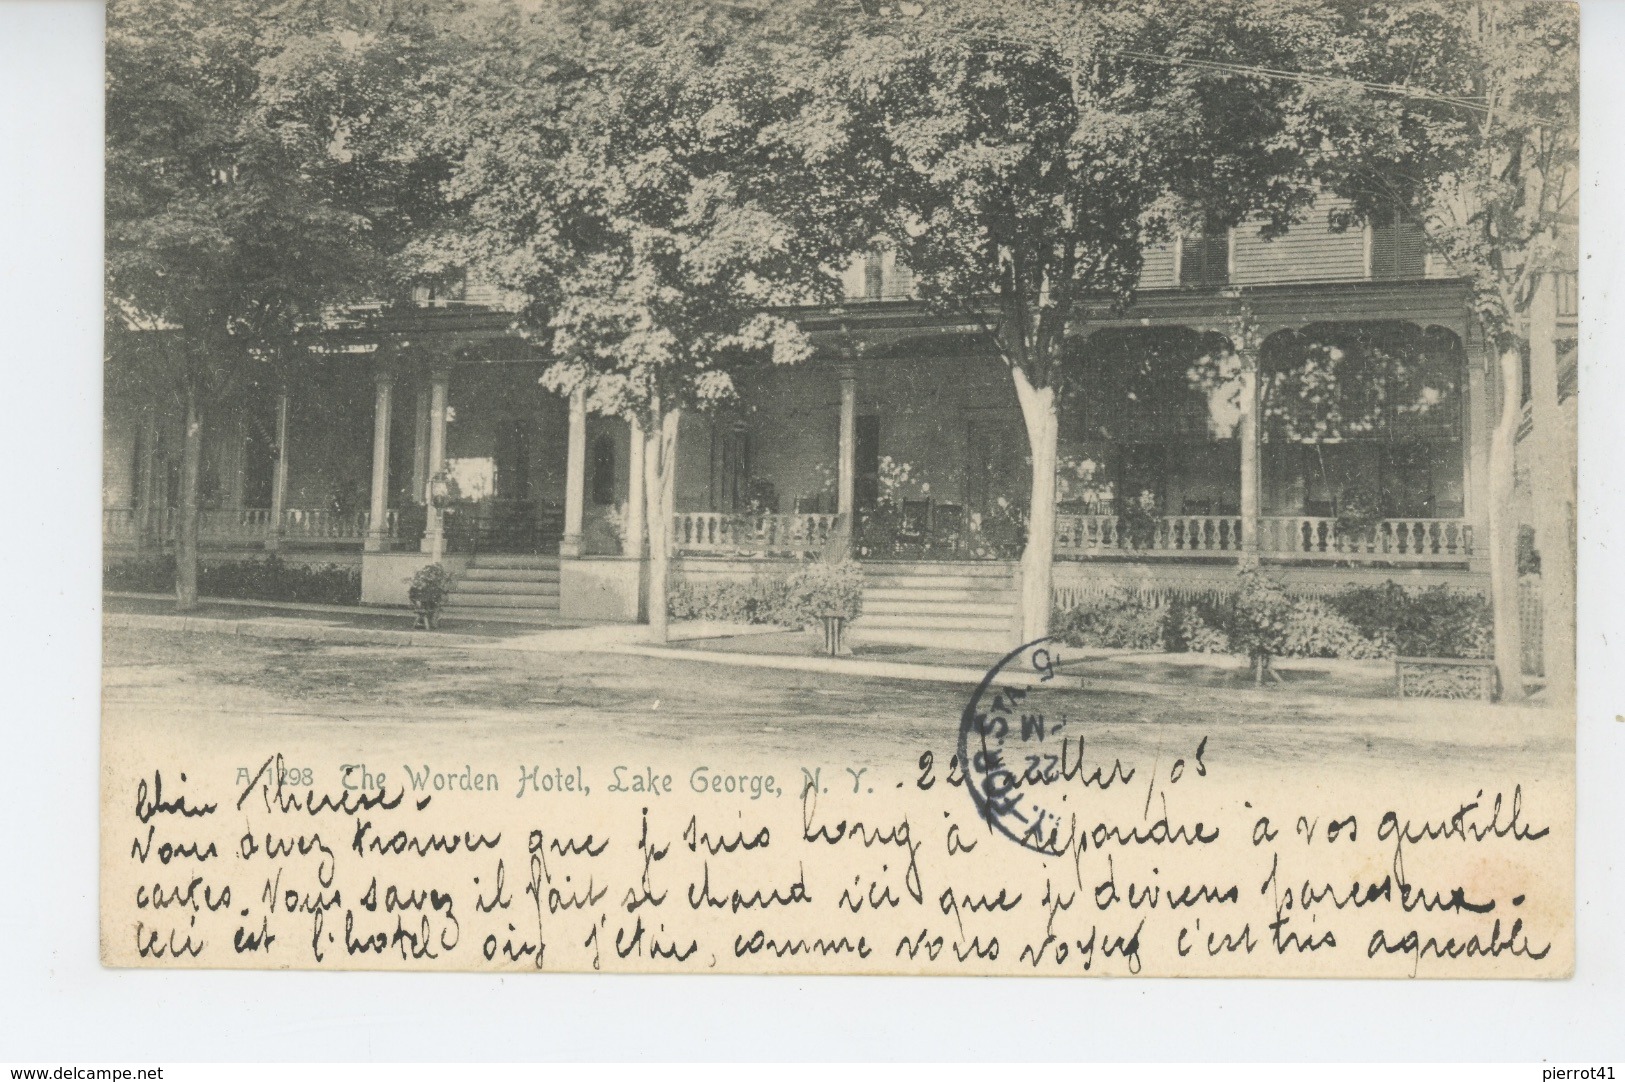 A 1298 The Worden Hotel, Lake George, N. Y.
22 Juillet /05
Chère Thérèse.
Vous devez trouver que je suis long à répondre à vos gentille
cartes. Vous savez il fait si chaud ici que je deviens paresseux.
Ceci est l'hotel où j'étais, comme vous voyez c'est très agréable
STA. 5
-M
22
www.delcampe.net
pierrot41